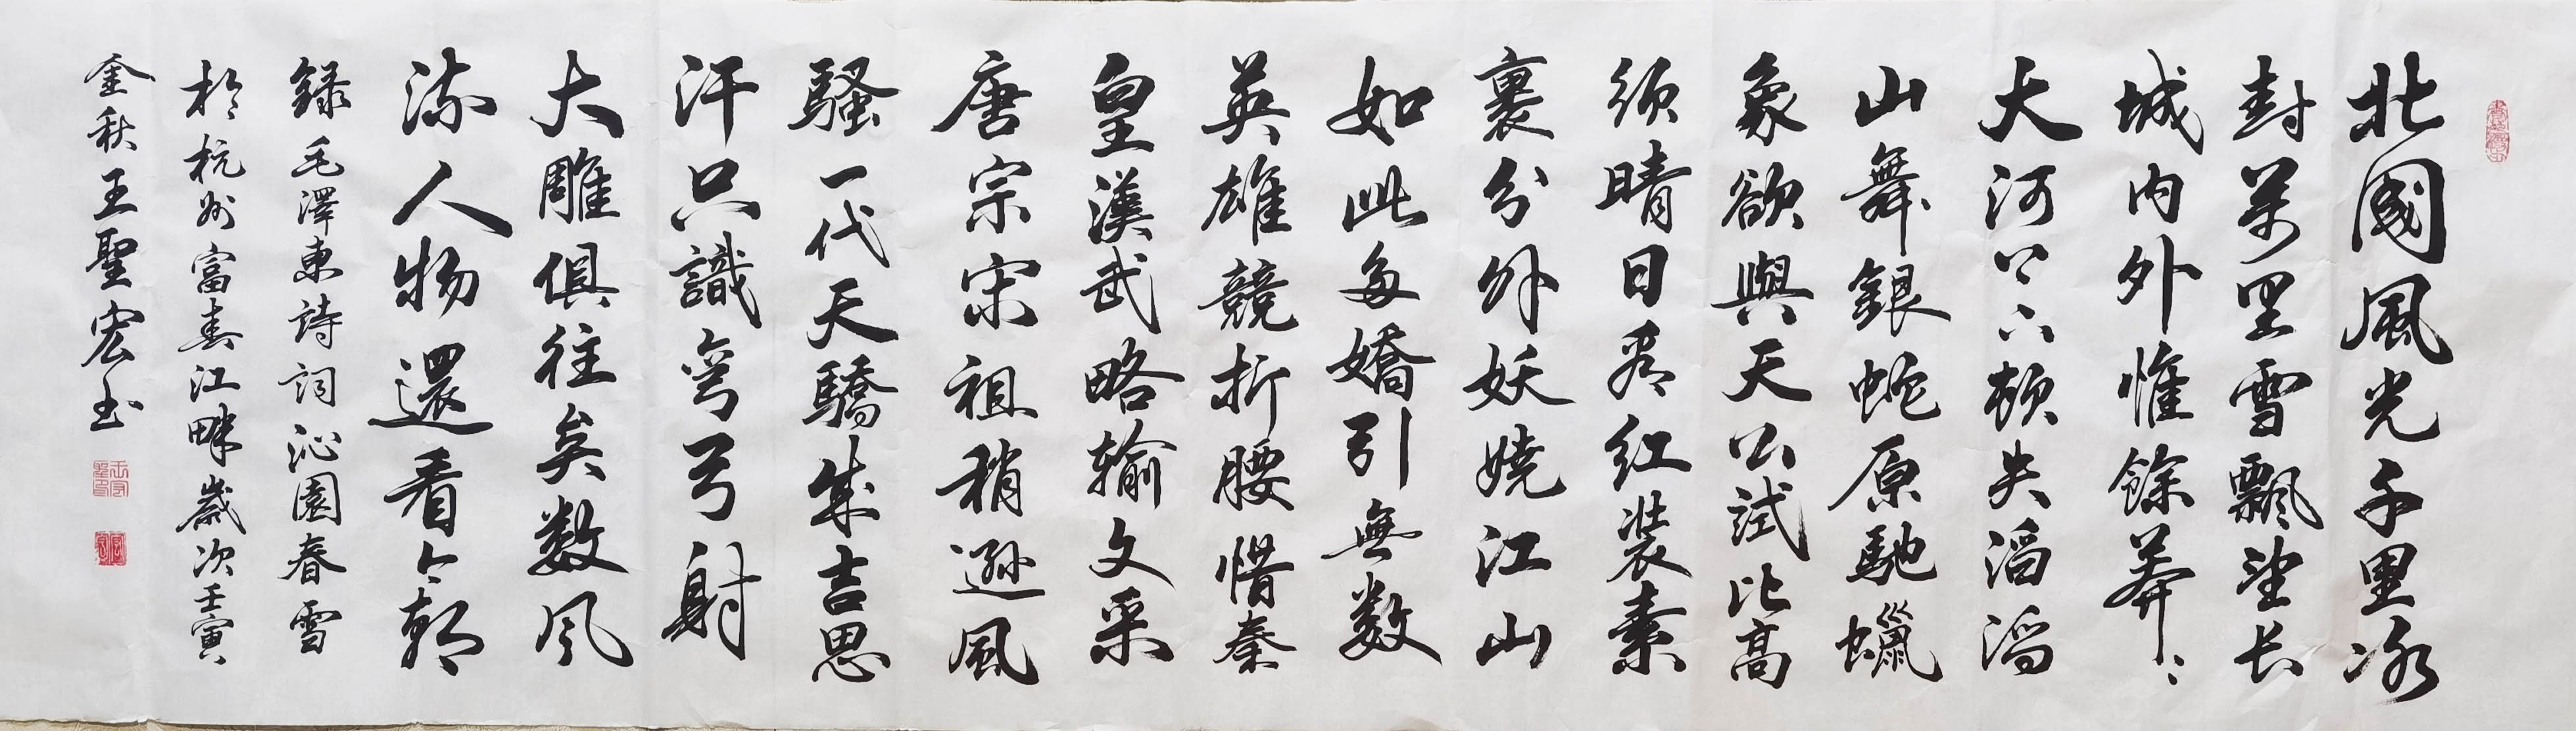 北國風光千里冰
封萬里雪飄望长
城内外惟餘莽〻
大河上下顿失滔滔
山舞銀蛇原馳蠟
象欲與天公試比高
须晴日看红装素
裹分外妖娆江山
如此多嬌引無数
英雄競折腰惜秦
皇漢武略输文采
唐宗宋祖稍遜風
騷一代天驕成吉思
汗只識彎弓射
大雕俱往矣数风
流人物還看今朝
録毛澤東詩詞沁園春雪
於杭州富春江畔歲次壬寅
金秋王聖宏书